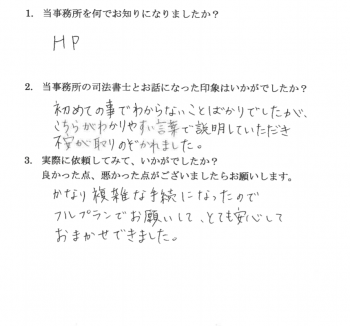 1. 当事務所を何でお知りになりましたか？
HP
2. 当事務所の司法書士とお話になった印象はいかがでしたか？
初めての事でわからないことばかりでしたが、
こちらがわかりやすい言葉で説明していただき
不安が取りのぞかれました。
3. 実際に依頼してみて、いかがでしたか？
良かった点、悪かった点がございましたらお願いします。
かなり複雑な手続になったので
フルプランでお願いして、とても安心して
おまかせできました。